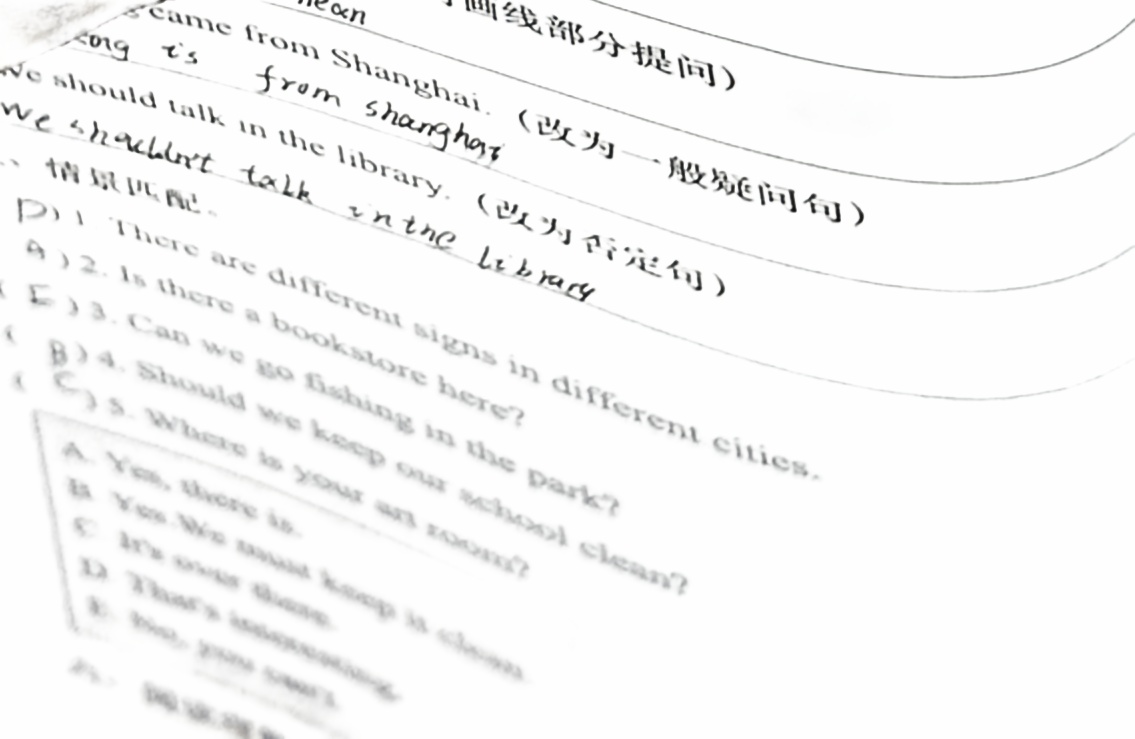 画线部分提问）
came from Shanghai.（改为一般疑问句）
is from shanghai
We should talk in the library.（改为否定句）
We shouldn't talk in the library
情景匹配。
D) 1 There are different signs in different cities.
A) 2. Is there a bookstore here?
( E ) 3. Can we go fishing in the park?
( B ) 4. Should we keep our school clean?
( C ) 5. Where is your art room?
A. Yes, there is.
B Yes.We must keep it clean
C It's over there.
D That's interesting.
E No, you can't.